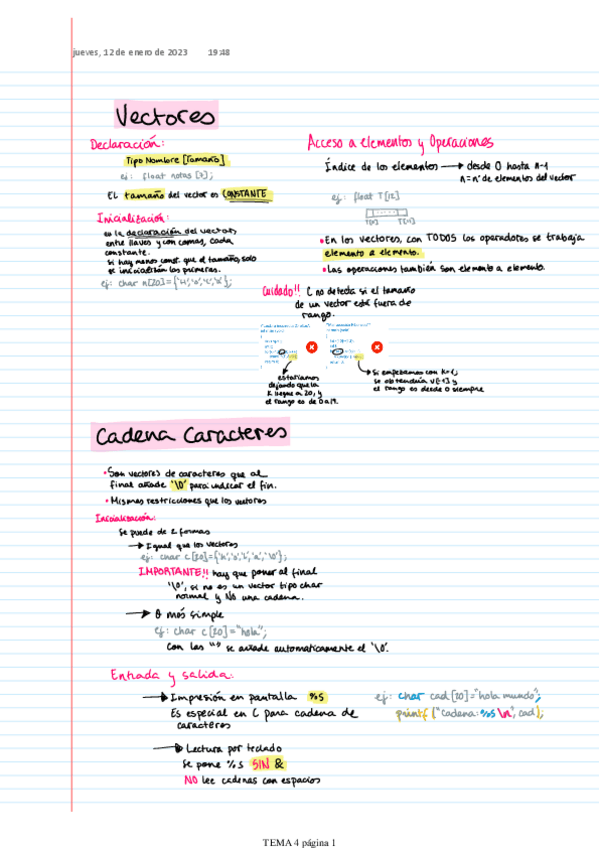 jueves, 12 de enero de 2023 19:48
Vectores
Declaración:
Tipo Nombre [Tamaño]
ej: float notas [3];
El tamaño del vector es CONSTANTE
Inicialización:
en la declaración del vector,
entre llaves y con comas, cada
constante.
si hay menos const. que el tamaño, solo
se inicializan los primeros.
ej: char n[20]={'H','o','l','a'};
Acceso a elementos y Operaciones
Índice de los elementos → desde 0 hasta n-1
n=nº de elementos del vector
ej: float T[12]
T[0] T[11]
• En los vectores, con TODOS los operadores se trabaja
elemento a elemento.
• Las operaciones también son elemento a elemento.
Cuidado!! C no detecta si el tamaño
de un vector está fuera de
rango.
estaríamos
dejando que la
K llegue a 20, y
el rango es de 0 a 19.
Si empezamos con K=1,
se obtendría V[-1] y
el rango es desde 0 siempre
Cadena Caracteres
• Son vectores de caracteres que al
final añade '\0' para indicar el fin.
• Mismas restricciones que los vectores
Inicialización:
Se puede de 2 formas
→ Igual que los vectores
ej: char c[20]={'h','o','l','a','\0'};
IMPORTANTE!! hay que poner al final
'\0', si no es un vector tipo char
normal y NO una cadena.
→ O más simple
ej: char c[20]="hola";
Con las "" se añade automaticamente el '\0'.
Entrada y salida:
→ Impresión en pantalla %s
Es especial en C para cadena de
caracteres
ej: char cad[20]="hola mundo";
printf ("Cadena: %s \n", cad);
→ Lectura por teclado
Se pone %s SIN &
NO lee cadenas con espacios
TEMA 4 página 1